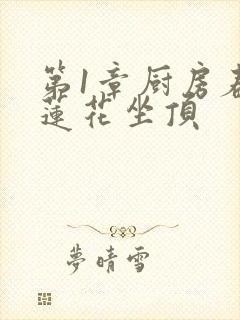 第1章厨房
蓮花坐頂
夢晴雪